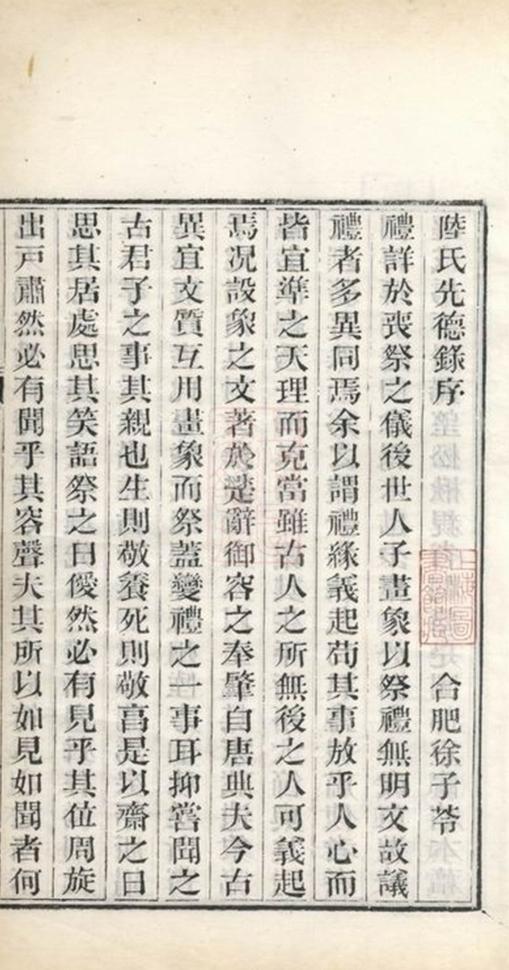 陸氏先德錄序
合肥徐子苓
禮詳於喪祭之儀後世人子畫象以祭禮無明文故議
禮者多異同焉余以謂禮緣義起苟其事放乎人心而
皆宜準之天理而克當雖古人之所無後之人可義起
焉况設象之文著於楚辭御容之奉肇自唐典夫今古
異宜文質互用畫象而祭蓋變禮之一事耳抑嘗聞之
古君子之事其親也生則敬養死則敬享是以齋之日
思其居處思其笑語祭之日僾然必有見乎其位周旋
出戸肅然必有聞乎其容聲夫其所以如見如聞者何